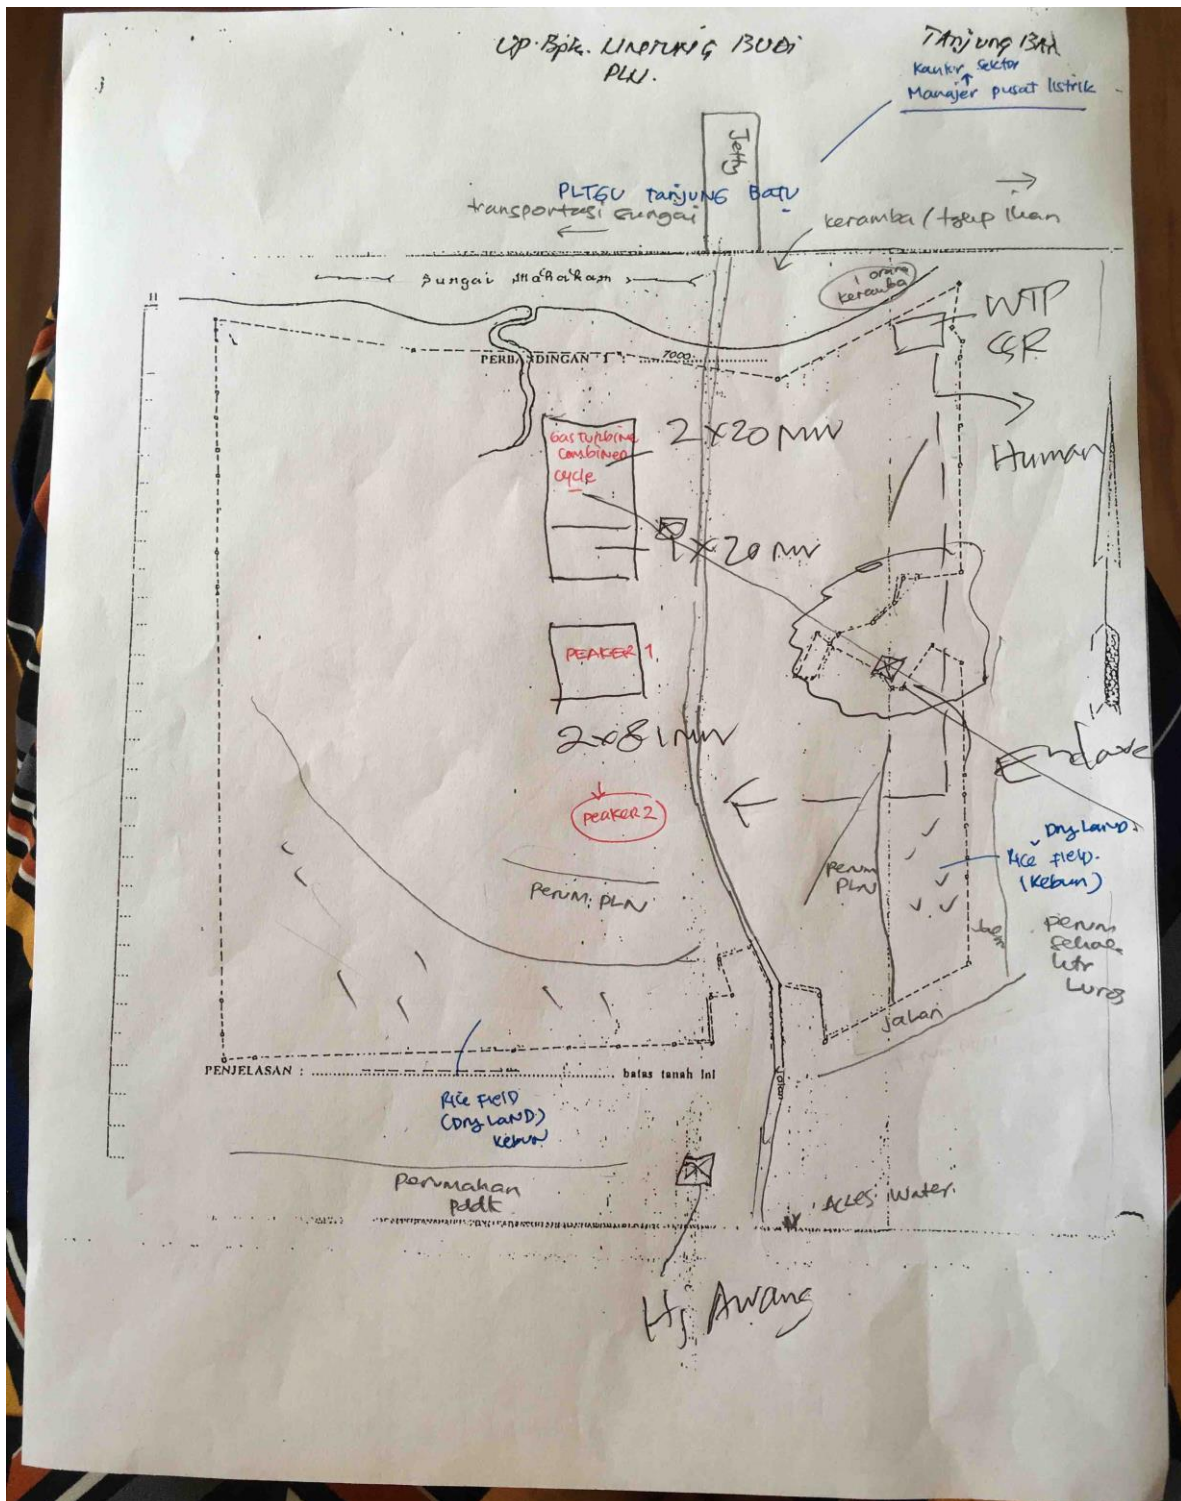 Up. Bpk. UNTUNG BUDI
PLN.
Kantor Sektor
Manajer pusat listrik
Jetty
PLTGU TanjUNG BaTU
transportasi sungai
keramba / tgkp ikan
Sungai Mahakam
1 orang
keramba
WTP
CSR
PERBANDINGAN 1 : 7000
Gas Turbine
Combined
cycle
2 x 20 MW
Human
1 x 20 MW
PEAKER 1
2x81 MW
Enclave
peaker 2
Dry Land.
Rice Field.
(Kebun)
Perum
PLN
Perum. PLN
Jalan
perum
jalan
PENJELASAN : batas tanah ini
jalan
Rice Field
(Dry LAND)
Kebun
Perumahan
pddk
Acces Water.
Hj Awang